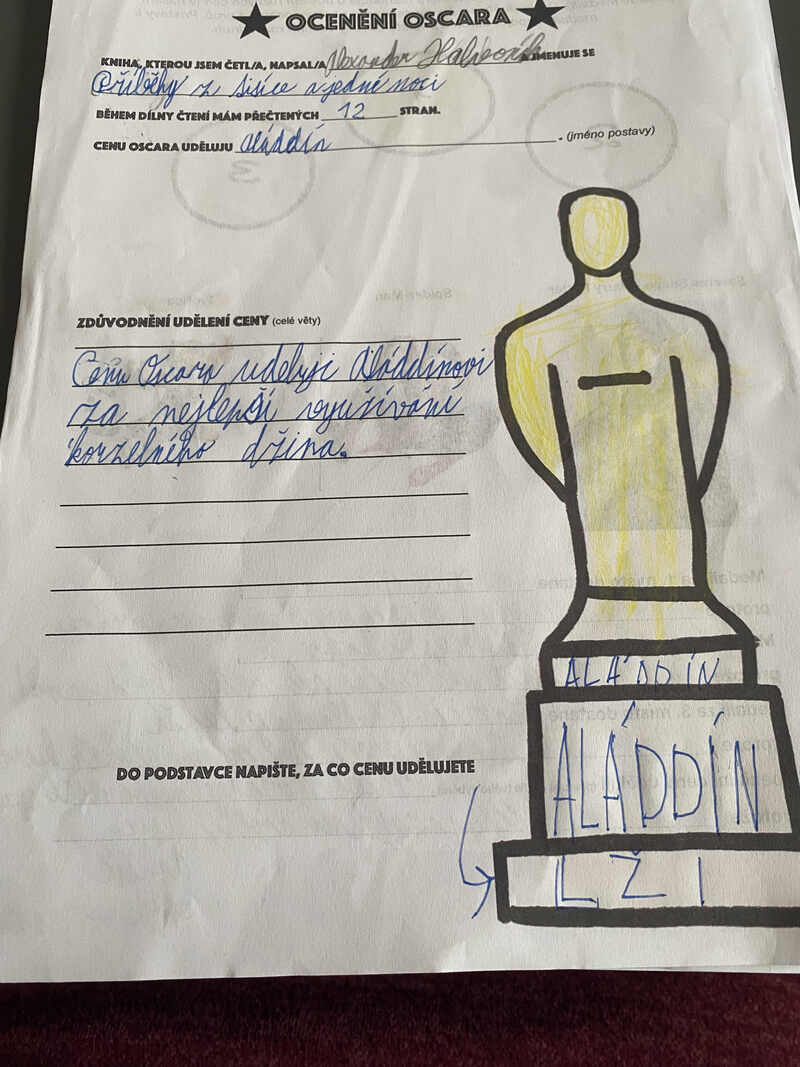 OCENĚNÍ OSCARA
KNIHA, KTEROU JSEM ČETL/A, NAPSAL/A Alexander A JMENUJE SE
Příběhy z tisíce a jedné noci
BĚHEM DÍLNY ČTENÍ MÁM PŘEČTENÝCH 12 STRAN.
CENU OSCARA UDĚLUJU Aláddín . (jméno postavy)
ZDŮVODNĚNÍ UDĚLENÍ CENY (celé věty)
Cenu Oscara uděluji Aláddínovi
za nejlepší využívání
kouzelného džina.
ALÁDDÍN
ALÁDDÍN
DO PODSTAVCE NAPIŠTE, ZA CO CENU UDĚLUJETE
LŽI